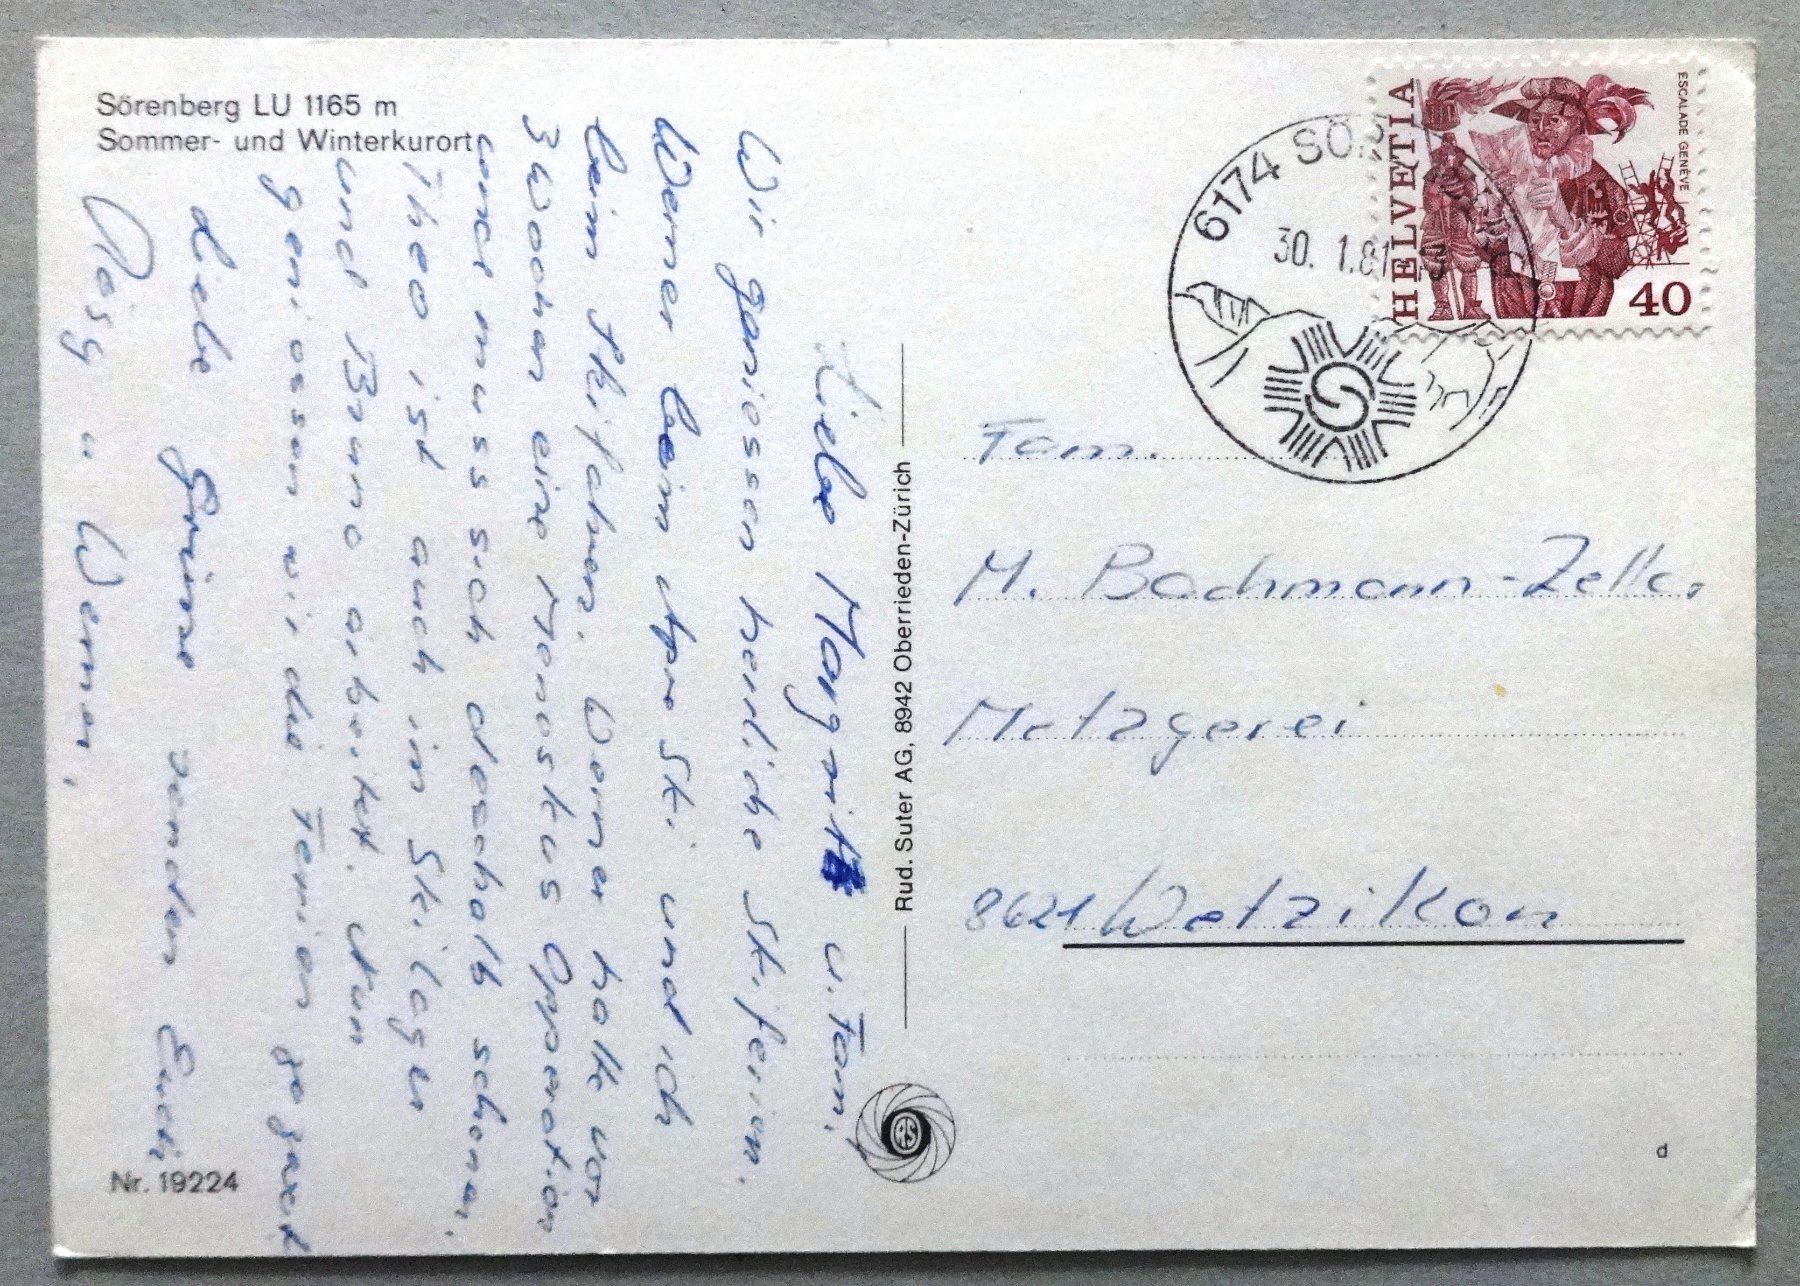 Sörenberg LU 1165 m
Sommer- und Winterkurort
Liebe Margrit u. Fam,
Wir geniessen herliche Skiferien.
Werner beim Apre Ski und ich
beim Skifahren. Werner hatte vor
3 Wochen eine Meniskus Opperation
und muss sich deshalb schonen.
Theo ist auch im Skilager
und Bruno arbeitet. Nun
geniessen wir die Ferien
Liebe Grüsse senden Euch
Rösy u Werner,
Nr. 19224
Rud. Suter AG, 8942 Oberrieden-Zürich
6174 SÖ
30. 1.81
S
HELVETIA
ESCALADE GENÈVE
40
Fam.
M. Bachmann-Zeller
Metzgerei
8621 Wetzikon
d